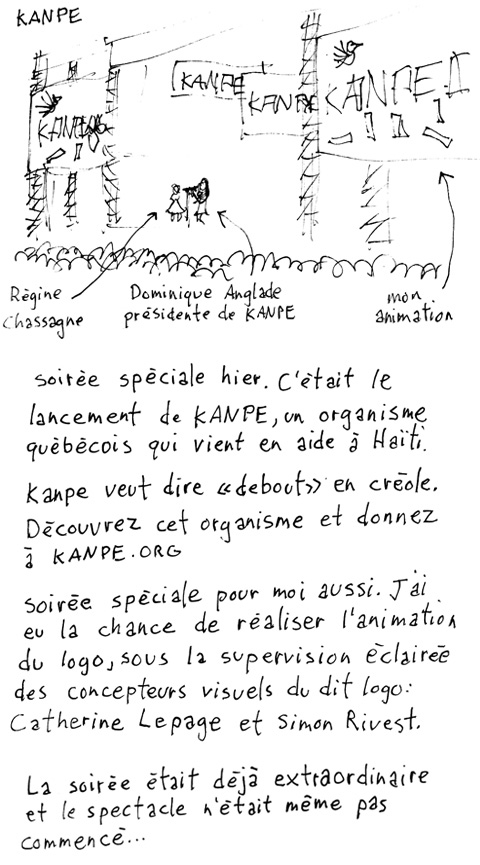 KANPE
KANPE
KANPE
KANPE
KANPE
Régine
Chassagne
Dominique Anglade
présidente de KANPE
mon
animation
soirée spéciale hier. C'était le
lancement de KANPE, un organisme
québécois qui vient en aide à Haïti.
Kanpe veut dire «debout» en créole.
Découvrez cet organisme et donnez
à KANPE.ORG
soirée spéciale pour moi aussi. J'ai
eu la chance de réaliser l'animation
du logo, sous la supervision éclairée
des concepteurs visuels du dit logo:
Catherine Lepage et Simon Rivest.
La soirée était déjà extraordinaire
et le spectacle n'était même pas
commencé...